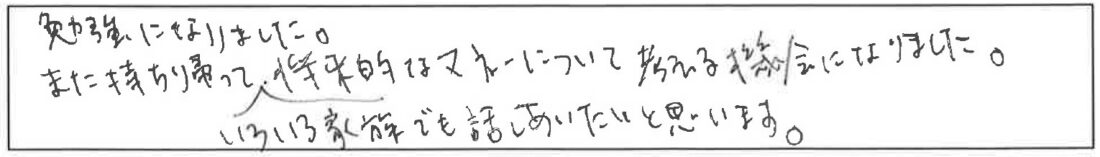 勉強になりました。
また持ち帰って、将来的なマネーについて考える機会になりました。
いろいろ家族でも話しあいたいと思います。